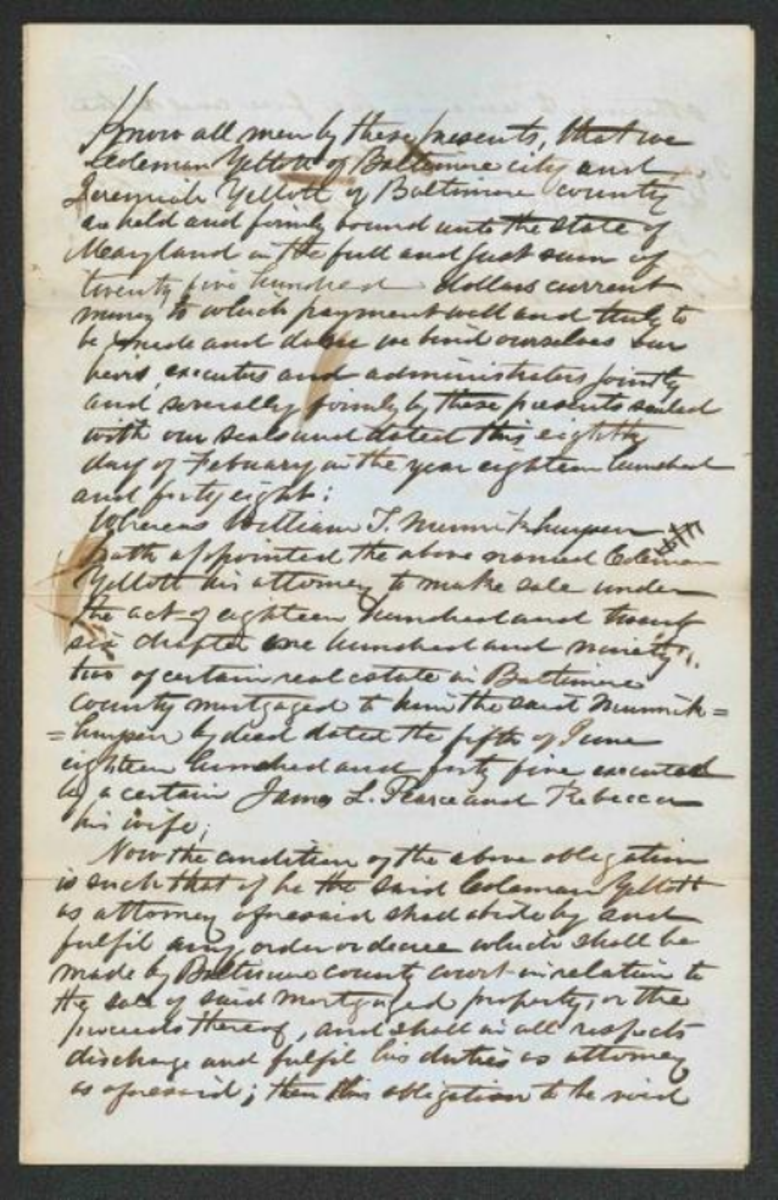 Know all men by these presents, that we
Coleman Yellott of Baltimore city and
Jeremiah Yellott of Baltimore county
are held and firmly bound unto the state of
Maryland in the full and just sum of
twenty five hundred dollars current
money to which payment well and truly to
be made and done we bind ourselves our
heirs, executors and administrators jointly
and severally firmly by these presents sealed
with our seals and dated this eighth
day of Febuary in the year eighteen hundred
and forty eight:
Whereas William T. Munnikhuysen
hath appointed the above named Coleman
Yellott his attorney to make sale under
the act of eighteen hundred and twenty
six chapter one hundred and ninety
two of certain real estate in Baltimore
county mortgaged to him the said Munnik=
=huysen by deed dated the fifth of June
eighteen hundred and forty five executed
by a certain James L. Pearce and Rebecca
his wife;
Now the condition of the above obligation
is such that if he the said Coleman Yellott
as attorney aforesaid shall abide by and
fulfil any order or decree which shall be
made by Baltimore county court in relation to
the sale of said mortgaged property, or the
proceeds thereof, and shall in all respects
discharge and fulfil his duties as attorney
as aforesaid; then this obligation to be void